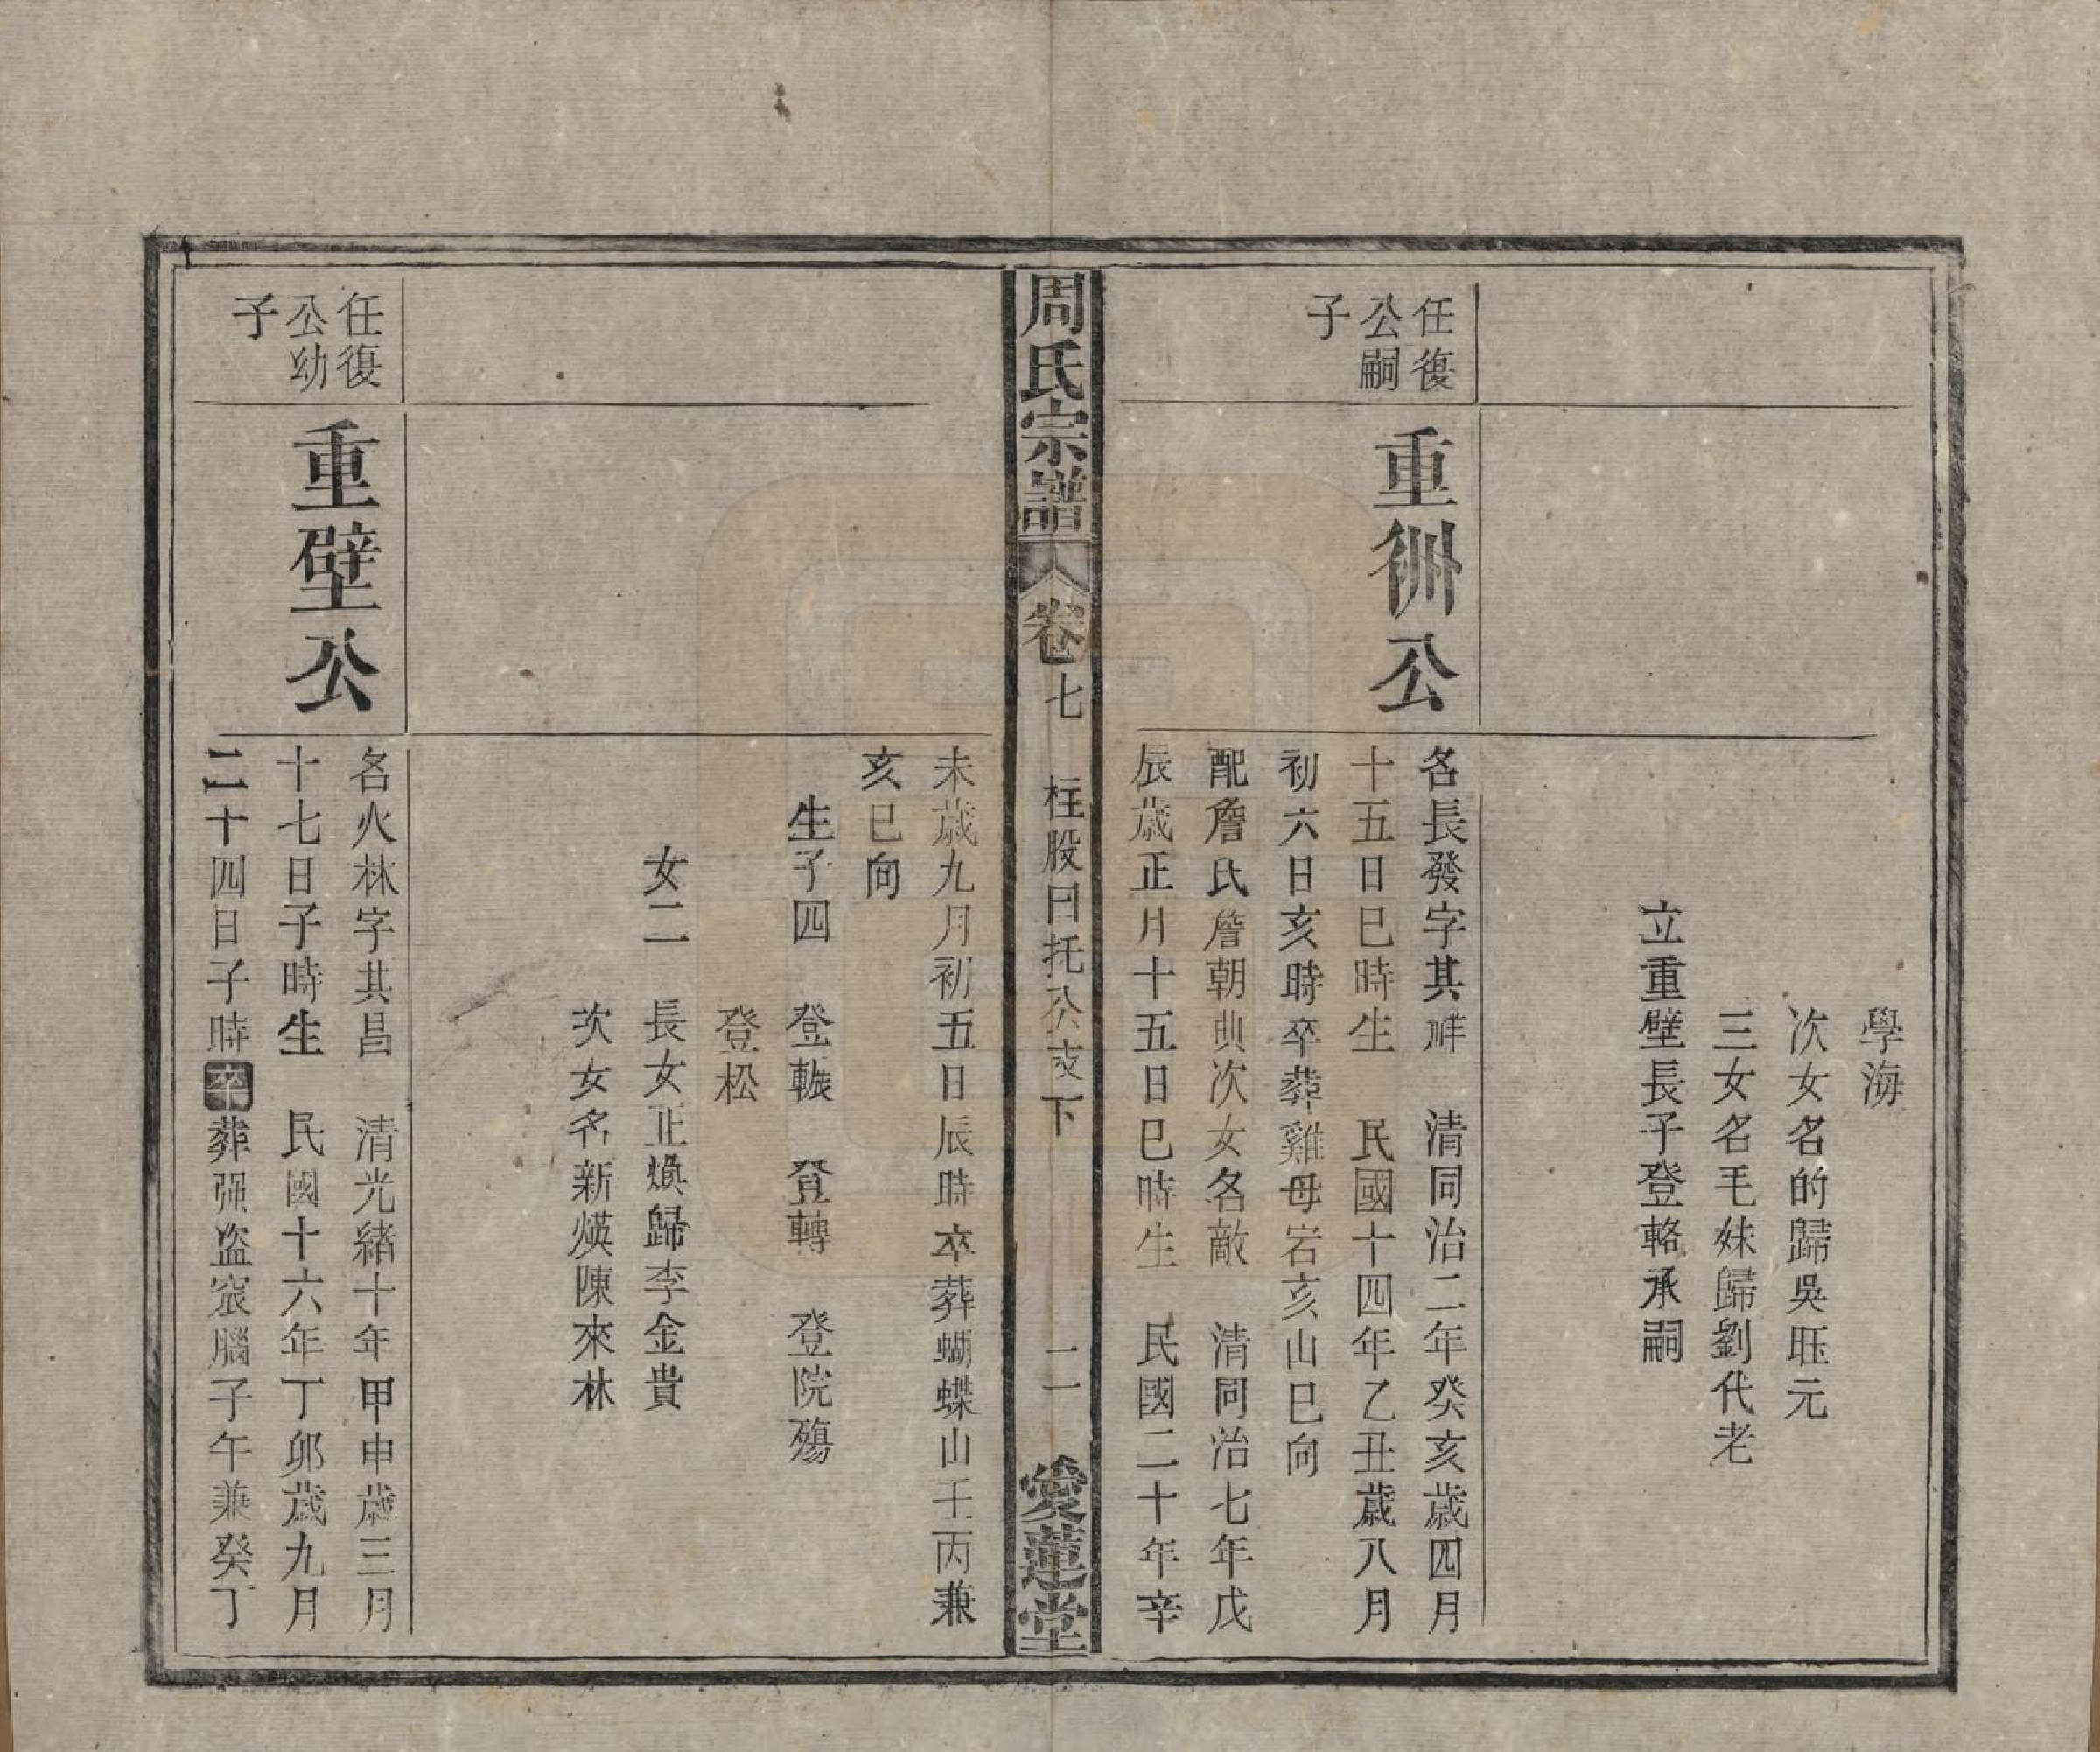 學海
次女名的歸吳玨元
三女名毛妹歸劉代老
立重壁長子登輅承嗣
任復
公嗣
子
重洲公
名長發字其祥　清同治二年癸亥歲四月
十五日巳時生　民國十四年乙丑歲八月
初六日亥時卒葬雞母宕亥山巳向
配詹氏詹朝典次女名敵　清同治七年戊
辰歲正月十五日巳時生　民國二十年辛
周氏宗譜　卷七　柱股日托公支下　二一　愛蓮堂
未歲九月初五日辰時卒葬蝴蝶山壬丙兼
亥巳向
生子四　登輾　登轉　登院殤
登松
女二　長女正煥歸李金貴
次女名新煐陳來林
任復
公幼
子
重壁公
名火林字其昌　清光緒十年甲申歲三月
十七日子時生　民國十六年丁卯歲九月
二十四日子時卒葬强盗窽腦子午兼癸丁